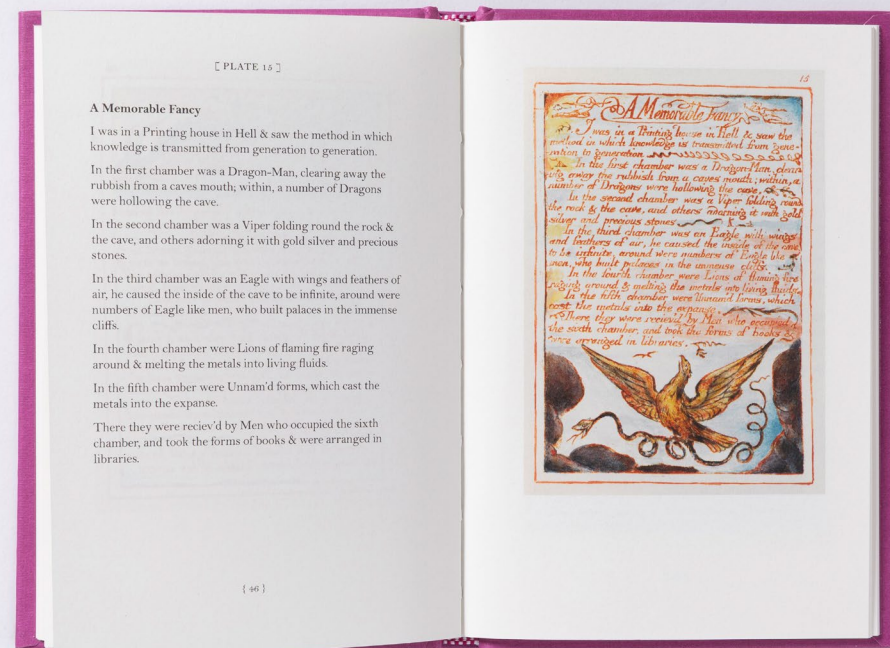 [ PLATE 15 ]
A Memorable Fancy
I was in a Printing house in Hell & saw the method in which
knowledge is transmitted from generation to generation.
In the first chamber was a Dragon-Man, clearing away the
rubbish from a caves mouth; within, a number of Dragons
were hollowing the cave.
In the second chamber was a Viper folding round the rock &
the cave, and others adorning it with gold silver and precious
stones.
In the third chamber was an Eagle with wings and feathers of
air, he caused the inside of the cave to be infinite, around were
numbers of Eagle like men, who built palaces in the immense
cliffs.
In the fourth chamber were Lions of flaming fire raging
around & melting the metals into living fluids.
In the fifth chamber were Unnam'd forms, which cast the
metals into the expanse.
There they were reciev'd by Men who occupied the sixth
chamber, and took the forms of books & were arranged in
libraries.
{ 46 }
15
A Memorable Fancy
I was in a Printing house in Hell & saw the
method in which knowledge is transmitted from gene-
-ration to generation
In the first chamber was a Dragon-Man, clear-
ing away the rubbish from a caves mouth; within, a
number of Dragons were hollowing the cave,
In the second chamber was a Viper folding round
the rock & the cave, and others adorning it with gold
silver and precious stones
In the third chamber was an Eagle with wings
and feathers of air, he caused the inside of the cave
to be infinite, around were numbers of Eagle like
men, who built palaces in the immense cliffs.
In the fourth chamber were Lions of flaming fire
raging around & melting the metals into living fluids.
In the fifth chamber were Unnam'd forms, which
cast the metals into the expanse.
There they were reciev'd by Men who occupied
the sixth chamber, and took the forms of books &
were arranged in libraries.